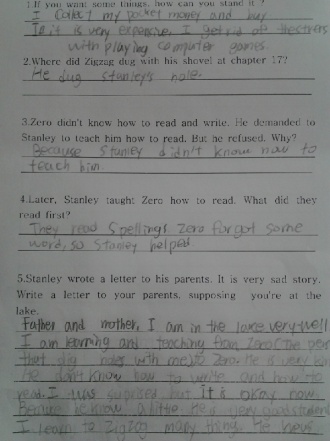 1.If you want some things, how can you stand it ?
I collect my pocket money and buy
If it is very expensive, I get rid of the stress
with playing computer games.
2.Where did Zigzag dug with his shovel at chapter 17?
He dug stanley's hole.
3.Zero didn't know how to read and write. He demanded to
Stanley to teach him how to read. But he refused. Why?
Because Stanley didn't know how to
teach him.
4.Later, Stanley taught Zero how to read. What did they
read first?
They read Spellings. Zero forgot some
word, so Stanley helped.
5.Stanley wrote a letter to his parents. It is very sad story.
Write a letter to your parents, supposing you're at the
lake.
Father and mother, I am in the lake very well
I am learning and teaching from Zero( The
that dig holes with me) to Zero. He is very
He don't know how to write and how to
read. I was suprised but it is okay now.
Because he know a little. He is very good student
I learn to Zigzag many thing. He